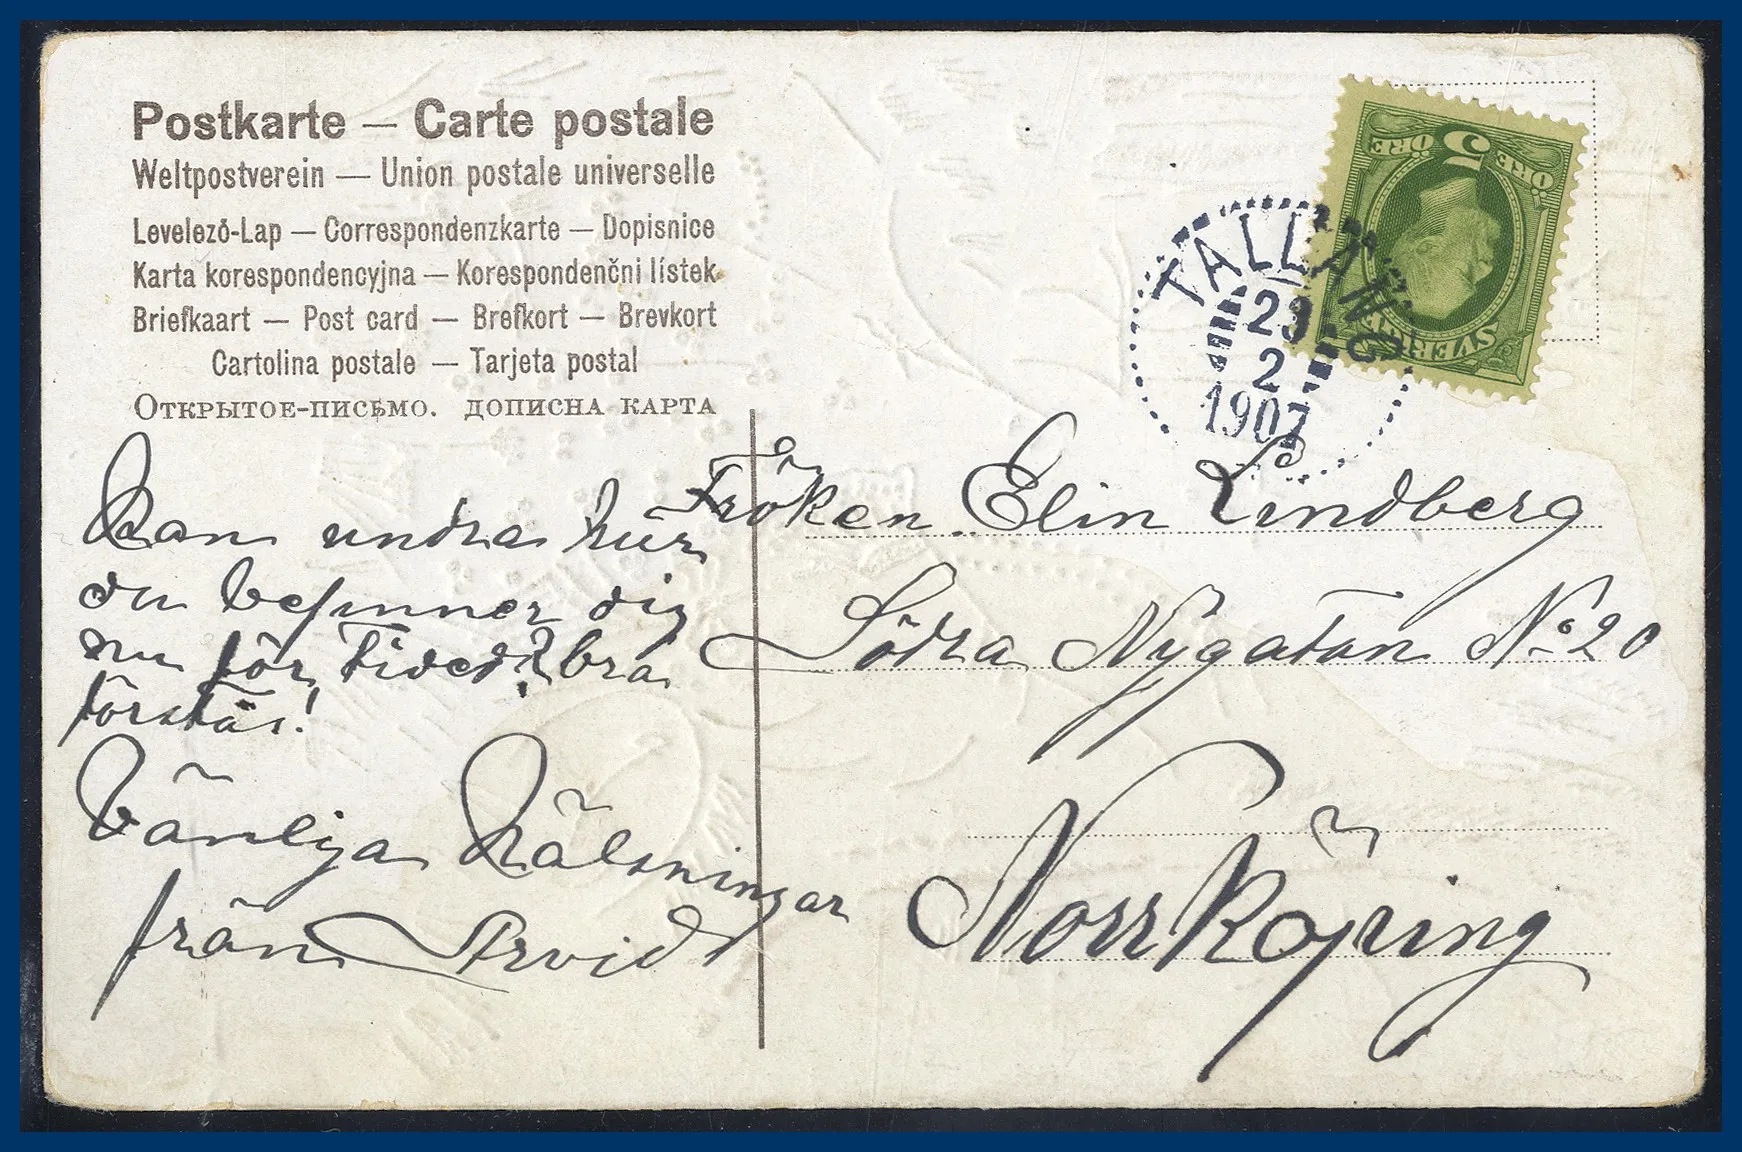 Postkarte — Carte postale
Weltpostverein — Union postale universelle
Levelező-Lap — Correspondenzkarte — Dopisnice
Karta korespondencyjna — Korespondenčni lístek
Briefkaart — Post card — Brefkort — Brevkort
Cartolina postale — Tarjeta postal
Открытое-письмо. дописна карта
5
ÖRE ÖRE
SVERIGE
TALLÅN
23
2
1907
Kan undra hur
du befinner dig
nu för Tiden? bra
förstås!
Vänliga Hälsningar
från Arvid
Fröken Elin Lindberg
Södra Nygatan No 20
Norrköping